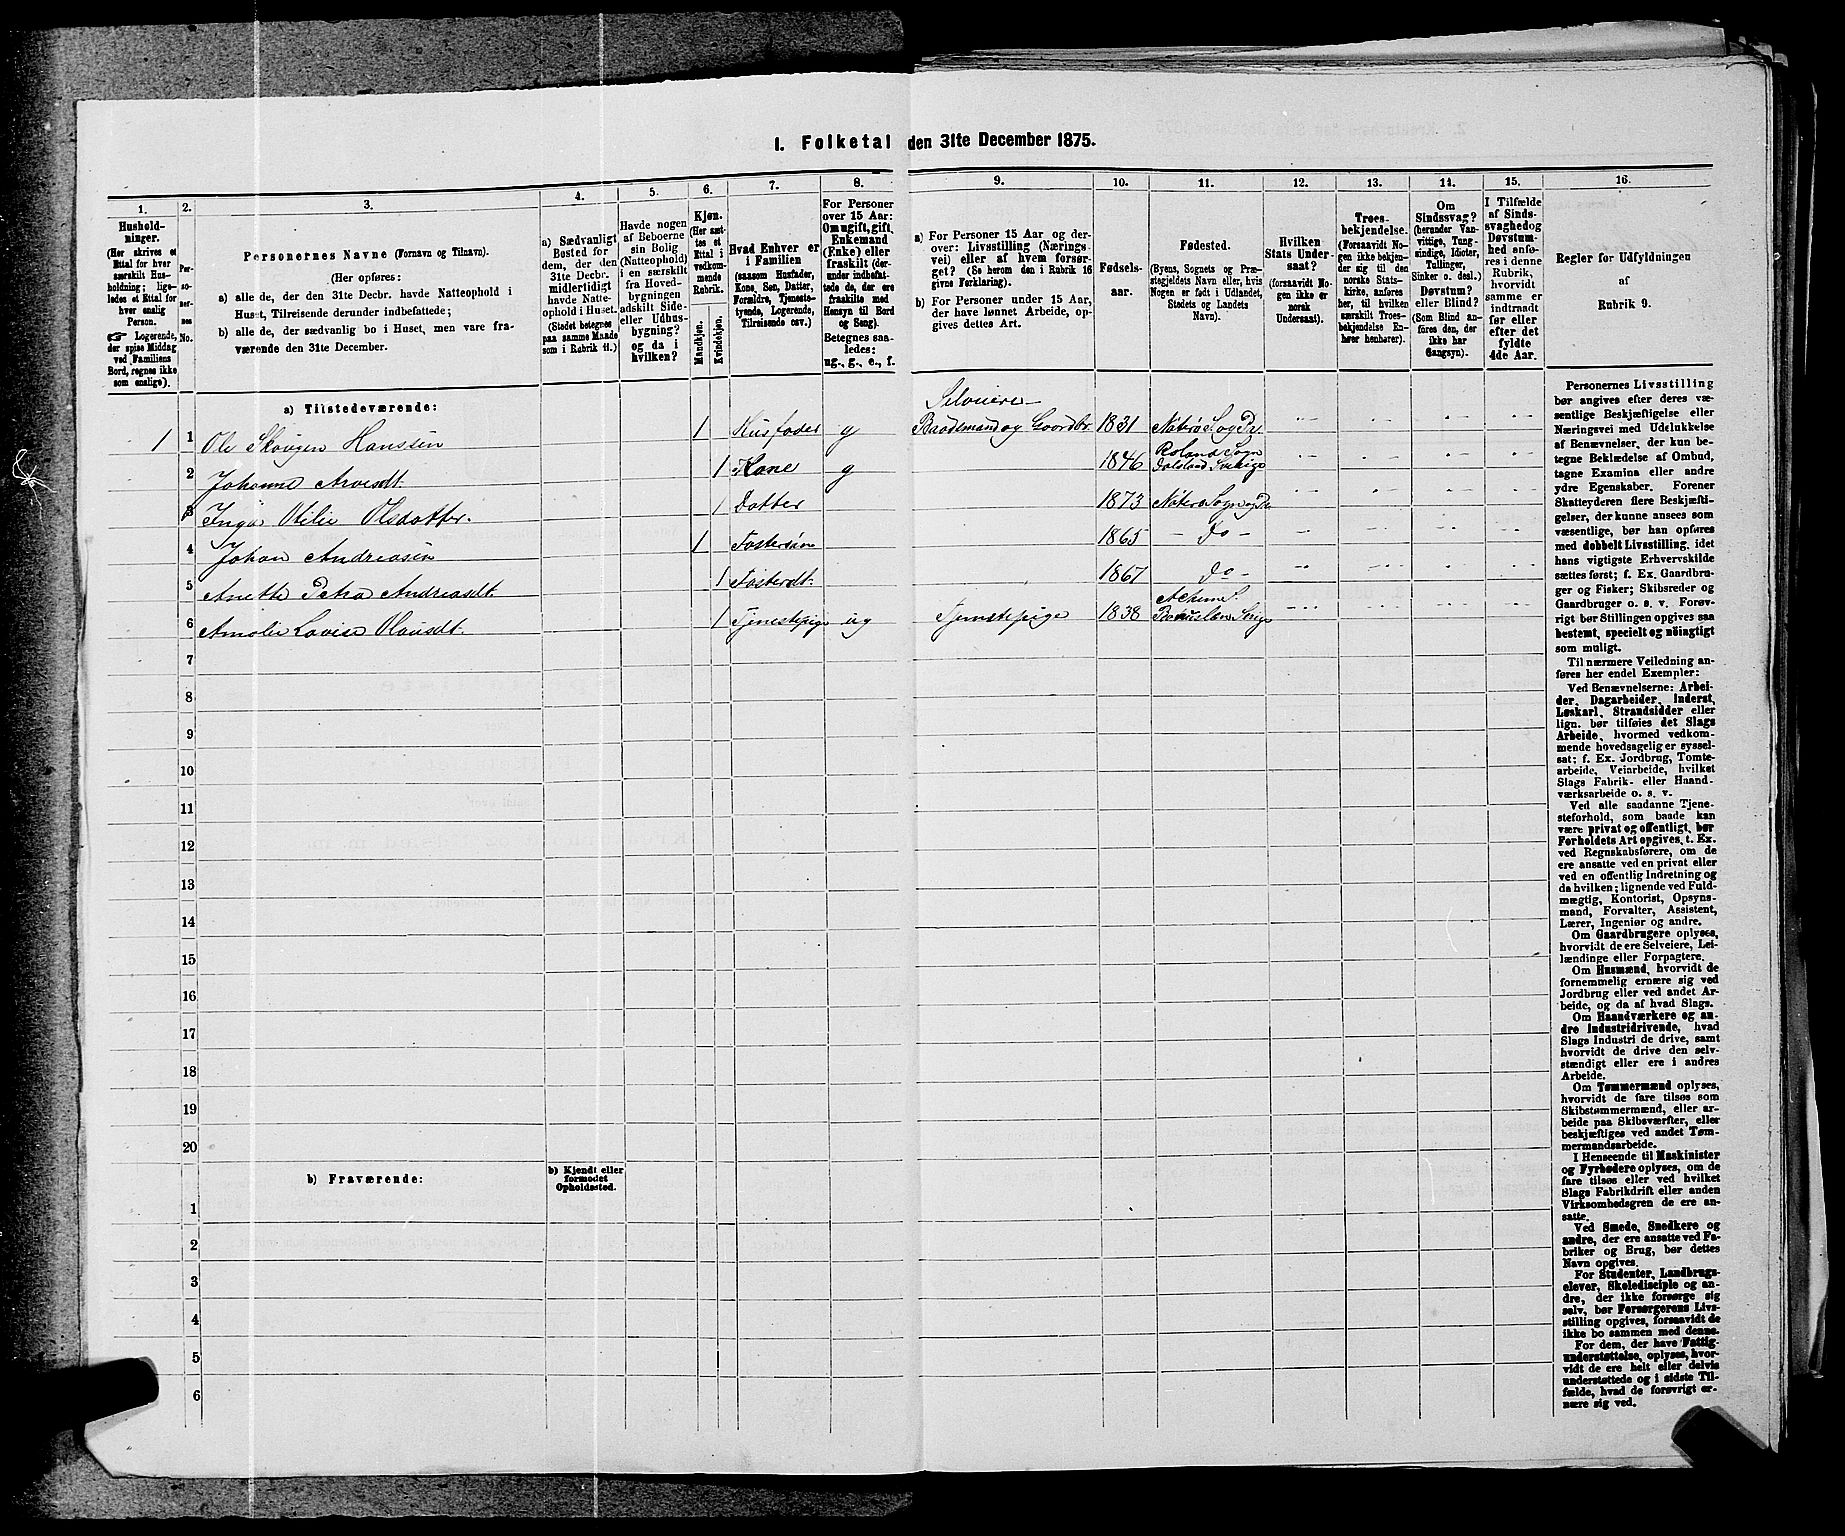 I. Folketal den 31te December 1875.
1.
Hushold-
ninger.
(Her skrives et
Ettal for hver
særskilt Hus-
holdning; lige-
ledes et Ettal for
hver enslig
Person.
☞ Logerende,
der spise Middag
ved Familiens
Bord, regnes ikke
som enslige).
2.
Per-
so-
ner-
nes
No.
3.
Personernes Navne (Fornavn og Tilnavn).
(Her opføres:
a) alle de, der den 31te Decbr. havde Natteophold i
Huset, Tilreisende derunder indbefattede;
b) alle de, der sædvanlig bo i Huset, men vare fra-
værende den 31te December.
4.
a) Sædvanligt
Bosted for
dem, der den
31te Decbr.
midlertidigt
havde Natte-
ophold i Huset.
(Stedet betegnes
paa samme Maade
som i Rubrik 11.)
5.
Havde nogen
af Beboerne
sin Bolig
(Natteophold)
i en særskilt
fra Hoved-
bygningen
adskilt Side-
eller Udhus-
bygning?
og da i
hvilken?
6.
Kjøn.
(Her sæt-
tes et
Ettal i
vedkom-
mende
Rubrik.
Mandkjøn.
Kvindekjøn.
7.
Hvad Enhver er
i Familien
(saasom Husfader,
Kone, Søn, Datter,
Forældre, Tjeneste-
tyende, Logerende,
Tilreisende osv.)
8.
For Personer
over 15 Aar:
Om ugift, gift,
Enkemand
(Enke) eller
fraskilt (der-
under indbefat-
tede de, der ere
fraskilte med
Hensyn til Bord
og Seng).
Betegnes saa-
ledes:
ug., g., e., f.
9.
a) For Personer 15 Aar og der-
over: Livsstilling (Nærings-
vei) eller af hvem forsør-
get? (Se herom den i Rubrik 16
givne Forklaring).
b) For Personer under 15 Aar,
der have lønnet Arbeide, op-
gives dettes Art.
10.
Fødsels-
aar.
11.
Fødested.
(Byens, Sognets og Præ-
stegjeldets Navn eller, hvis
Nogen er født i Udlandet,
Stedets og Landets
Navn).
12.
Hvilken
Stats Under-
saat?
(forsaavidt No-
gen ikke er
norsk
Undersaat).
13.
Troes-
bekjendelse.
(Forsaavidt No-
gen ikke bekjen-
der sig til den
norske Stats-
kirke, anføres
her, til hvilken
særskilt Troes-
bekjendelse En-
hver henhører).
14.
Om
Sindssvag?
(herunder Van-
vittige, Tung-
sindige, Idioter,
Tullinger,
Sinker o. desl.)
Døvstum?
eller Blind?
(Som Blind an-
føres den, der
ikke har
Gangsyn).
15.
I Tilfælde
af Sinds-
svaghed og
Døvstum-
hed anfø-
res i denne
Rubrik,
hvorvidt
samme er
indtraadt
før eller
efter det
fyldte
4de Aar.
16.
Regler for Udfyldningen
af
Rubrik 9.
a) Tilstedeværende:
Selveier
1 1 Ole Skougen Hanssen 1 Husfader g Baadsmand og Gaardbr. 1831
2 Johanne Arvesdt. 1 Kone g 1846 Dalsland Sverige
3 Inga Otilie Olsdatter. 1 Datter 1873
4 Johan Andreasen 1 Fostersøn 1865 - do -
5 Anette Petra Andreasdt. 1 Fosterdt. 1867 do -
6 Amalie Lovise 1 Tjenestepige ug Tjenstepige 1838
7
8
9
10
11
12
13
14
15
16
17
18
19
20
b) Fraværende:
b) Kjendt eller
formodet
Opholdssted.
1
2
3
4
5
6
Personernes Livsstilling
bør angives efter deres væ-
sentlige Beskjæftigelse eller
Næringsvei med Udelukkelse
af Benævnelser, der kun be-
tegne Beklædelse af Ombud,
tagne Examina eller andre
ydre Egenskaber. Forener
Skatteyderen flere Beskjæfti-
gelser, der kunne ansees som
væsentlige, bør han opføres
med dobbelt Livsstilling, idet
hans vigtigste Erhvervskilde
sættes først; f. Ex. Gaardbru-
ger og Fisker; Skibsreder og
Gaardbruger o. s. v. Forøv-
rigt bør Stillingen opgives saa
bestemt, specielt og nøiagtigt
som muligt.
Til nærmere Veiledning an-
føres her endel Exempler:
Ved Benævnelserne: Arbei-
der, Dagarbeider, Inderst,
Løskarl, Strandsidder eller
lign. bør tilføies det Slags
Arbeide, hvormed vedkom-
mende hovedsagelig er syssel-
sat; f. Ex. Jordbrug, Tomte-
arbeide, Veiarbeide, hvilket
Slags Fabrik- eller Haand-
værksarbeide o. s. v.
Ved alle saadanne Tjene-
steforhold, som baade kan
være privat og offentligt, bør
Forholdets Art opgives, t. Ex.
ved Regnskabsførere, om de
ere ansatte ved en privat eller
ved en offentlig Indretning og
da hvilken; lignende ved Fuld-
mægtig, Kontorist, Opsyns-
mand, Forvalter, Assistent,
Lærer, Ingeniør og andre.
Om Gaardbrugere oplyses,
hvorvidt de ere Selveiere, Lei-
lændinge eller Forpagtere.
Om Husmænd, hvorvidt de
fornemmelig ernære sig ved
Jordbrug eller ved andet Ar-
beide, og da af hvad Slags.
Om Haandværkere og an-
dre Industridrivende, hvad
Slags Industri de drive, samt
hvorvidt de drive den selv-
stændigt eller ere i andres
Arbeide.
Om Tømmermænd oplyses,
hvorvidt de fare tilsøs som
Skibstømmermænd, eller ar-
beide paa Skibsværfter, eller
beskjæftiges ved andet Tøm-
mermandsarbeide.
I Henseende til Maskinister
og Fyrbødere oplyses, om de
fare tilsøs eller ved hvilket
Slags Fabrikdrift eller anden
Virksomhedsgren de ere an-
satte.
Ved Smede, Snedkere og
andre, der ere ansatte ved Fa-
briker og Brug, bør dettes
Navn opgives.
For Studenter, Landbrugs-
elever, Skoledisciple og an-
dre, der ikke forsørge sig
selv, bør Forsørgerens Livs-
stilling opgives, forsaavidt de
ikke bo sammen med denne.
For dem, der have Fattig-
understøttelse, oplyses, hvor-
vidt de ere helt eller delvis
understøttede og i sidste Til-
fælde, hvad de forøvrigt er-
nære sig ved.